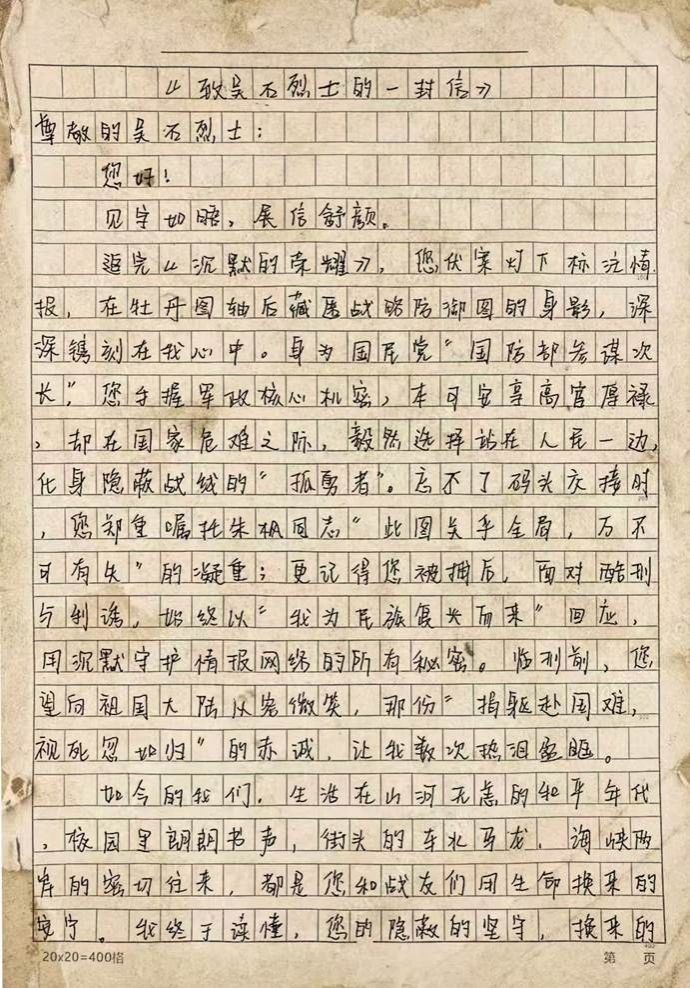 《致吴石烈士的一封信》
尊敬的吴石烈士:
您好!
见字如晤,展信舒颜。
追完《沉默的荣耀》,您伏案灯下标注情
报,在牡丹图轴后藏匿战略防御图的身影,深
深镌刻在我心中。身为国民党“国防部参谋次
长”,您手握军政核心机密,本可安享高官厚禄
,却在国家危难之际,毅然选择站在人民一边,
化身隐蔽战线的“孤勇者”。忘不了码头交接时
,您郑重嘱托朱枫同志“此图关乎全局,万不
可有失”的凝重;更记得您被捕后,面对酷刑
与利诱,始终以“我为民族复兴而来”回应,
用沉默守护情报网络的所有秘密。临刑前,您
望向祖国大陆从容微笑,那份“捐躯赴国难,
视死忽如归”的赤诚,让我数次热泪盈眶。
如今的我们,生活在山河无恙的和平年代
,校园里朗朗书声,街头的车水马龙,海峡两
岸的密切往来,都是您和战友们用生命换来的
安宁。我终于读懂,您的隐蔽的坚守,换来的
20×20=400格 第 页